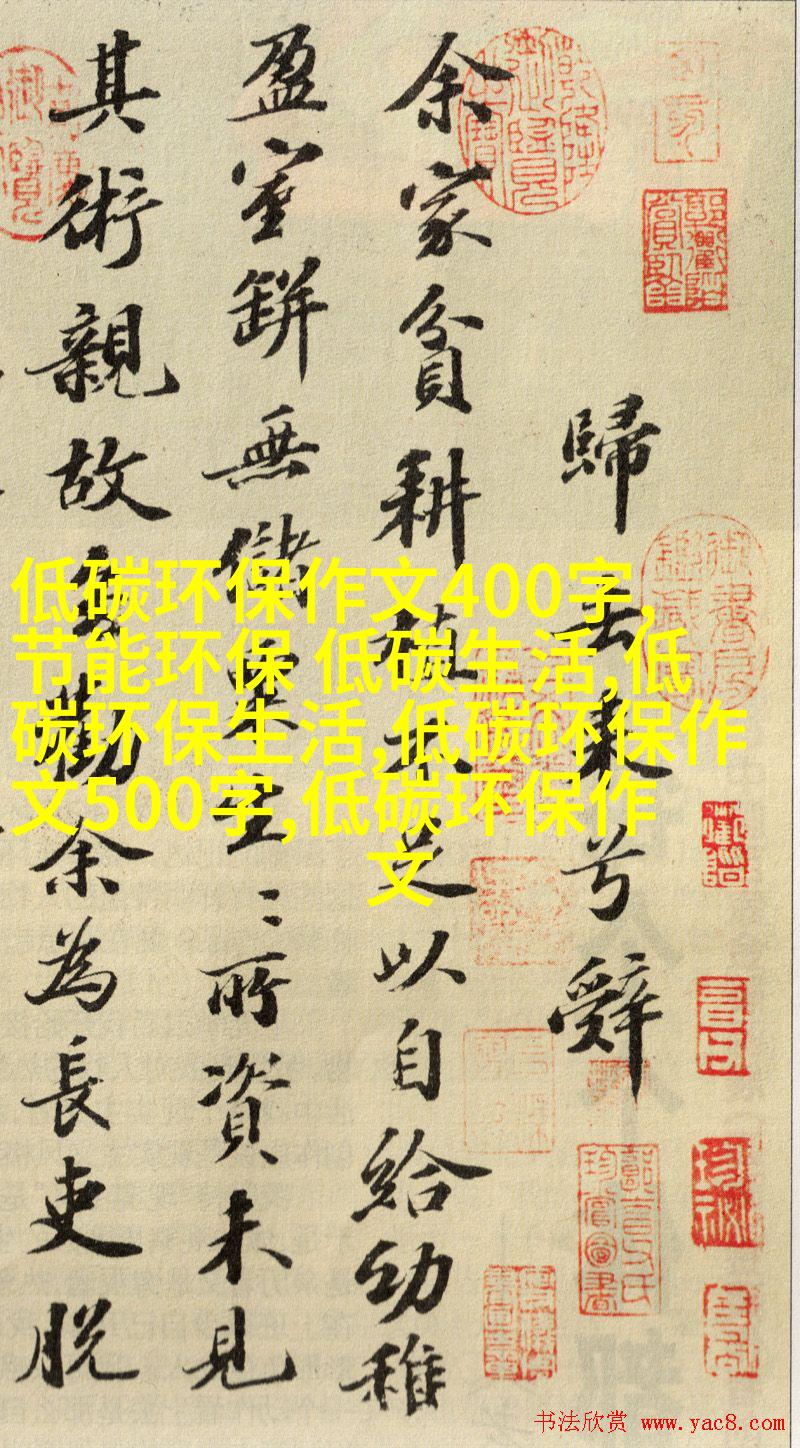 歸去来兮辭
余家貧耕植不足以自給幼稚
盈室缾無儲粟生〻所資未見
其術親故多勸余為長吏脱
低碳环保作文400字,
节能环保 低碳生活,低
碳环保生活,低碳环保作
文500字,低碳环保作
文
书法欣赏 www.yac8.com